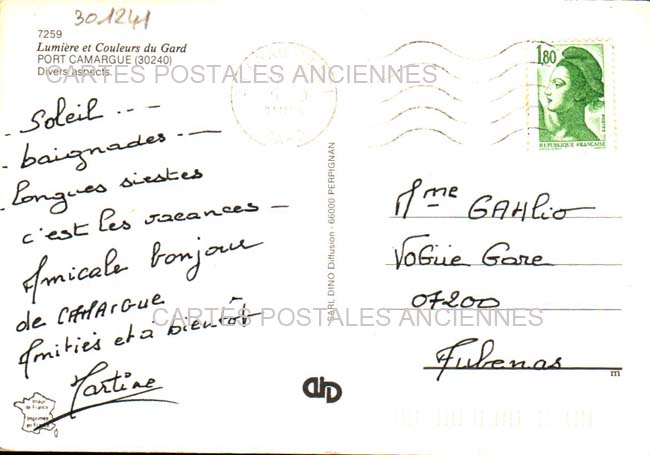 301241
7259
Lumière et Couleurs du Gard
PORT CAMARGUE (30240)
Divers aspects.
CARTES POSTALES ANCIENNES
- Soleil ---
- baignades. —
- longues siestes
c'est les vacances -
Amicale bonjour
de CAMARGUE
Amitiés et à bientôt
Martine
Image de France
Imprimée en France
SARL DINO Diffusion - 66000 PERPIGNAN
1,80
POSTES
REPUBLIQUE FRANÇAISE
Mme GAHLio
VOGÜE Gare
07200
Aubenas
m
CARTES POSTALES ANCIENNES